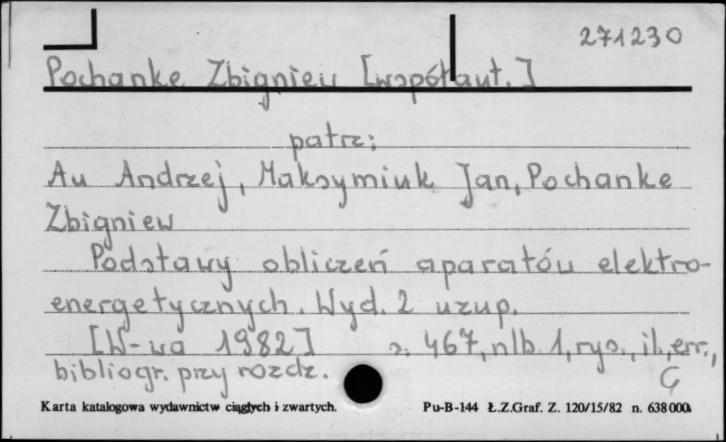 271230
Pochanke Zbigniew [współaut.]
patrz:
Au Andrzej, Maksymiuk Jan, Pochanke
Zbigniew
Podstawy obliczeń aparatów elektro-
energetycznych. Wyd. 2 uzup.
[W-wa 1982] s. 467, nlb. 1, rys., il., err.,
bibliogr. przy rozdz.
Karta katalogowa wydawnictw ciągłych i zwartych. Pu-B-144 Ł.Z.Graf. Z. 120/15/82 n. 638 000.